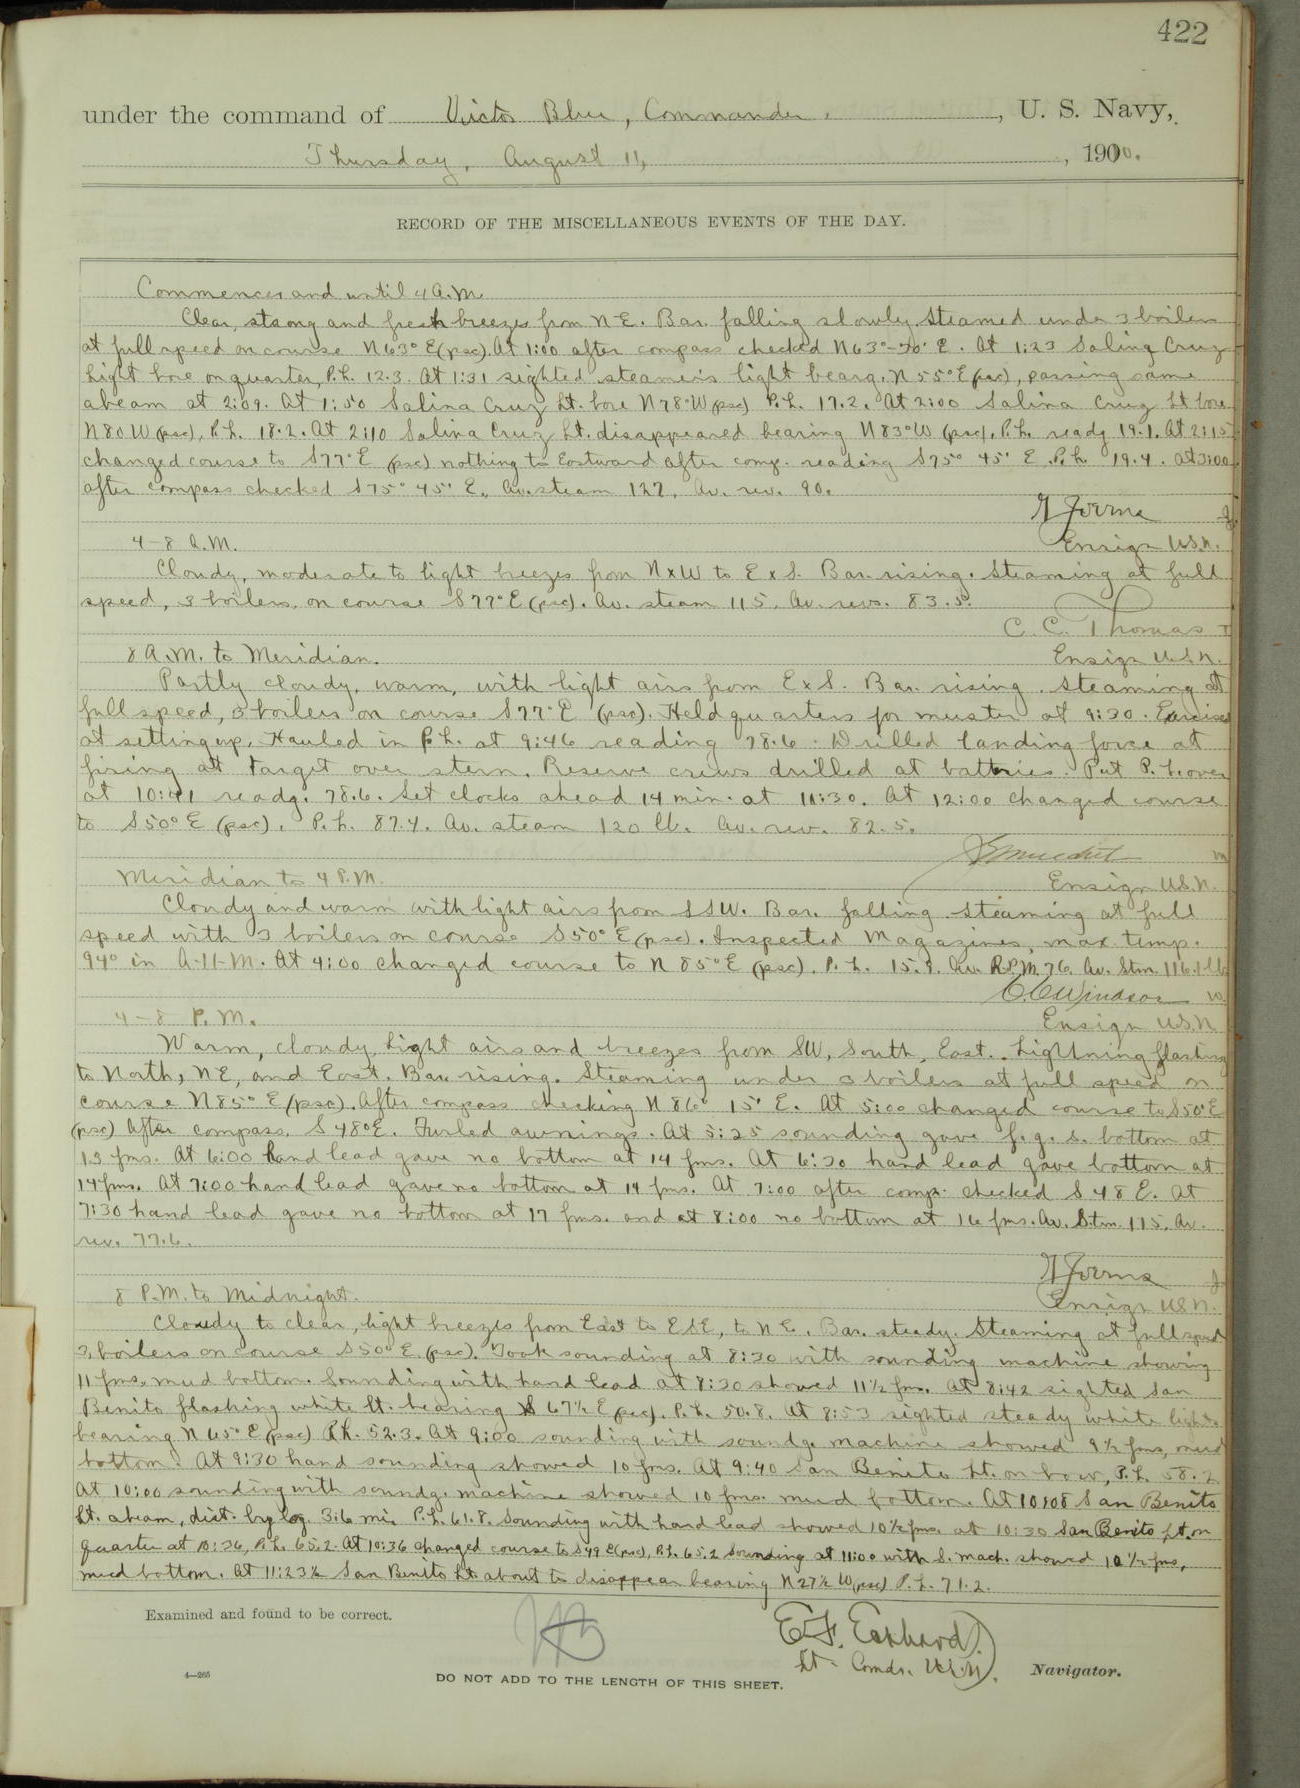 422
under the command of Victor Blue, Commander, U. S. Navy,
Thursday, August 11, 1910.
RECORD OF THE MISCELLANEOUS EVENTS OF THE DAY.
Commences and until 4 A.M.
Clear, strong and fresh breezes from NE. Bar. falling slowly. Steamed under 3 boilers
at full speed on course N63°E (psc). At 1:00 after compass checked N63°-30' E. At 1:23 Salina Cruz
Light bore on quarter, P.L. 12.3. At 1:31 sighted steamer's light bearg. N 55°E (psc), passing same
abeam at 2:09. At 1:50 Salina Cruz Lt. bore N78°W (psc) P.L. 17.2. At 2:00 Salina Cruz Lt bore
N80W (psc), P.L. 18.2. At 2:10 Salina Cruz Lt. disappeared bearing N83°W (psc). P.L. readg 19.1. At 2:15
changed course to S77°E (psc) nothing to Eastward after comp. reading S75° 45' E. P.L. 19.4. At 3:00
after compass checked S75° 45' E. Av. steam 127. Av. rev. 90.
Ensign U.S.N.
4-8 A.M.
Cloudy, moderate to light breezes from NxW to ExS. Bar. rising. Steaming at full
speed, 3 boilers, on course S77°E (psc). Av. steam 115. Av. revs. 83.5.
C. C. Thomas
Ensign U.S.N.
8 A.M. to Meridian.
Partly cloudy, warm, with light airs from ExS. Bar. rising. Steaming at
full speed, 3 boilers on course S77°E (psc). Held quarters for muster at 9:30. Exercised
at setting up. Hauled in P.L. at 9:46 reading 78.6. Drilled landing force at
firing at target over stern. Reserve crews drilled at batteries. Put P.L. over
at 10:41 readg. 78.6. Set clocks ahead 14 min. at 11:30. At 12:00 changed course
to S50°E (psc). P.L. 87.4. Av. steam 120 lb. Av. rev. 82.5.
Ensign U.S.N.
Meridian to 4 P.M.
Cloudy and warm with light airs from SSW. Bar. falling. Steaming at full
speed with 3 boilers on course S50°E (psc). Inspected Magazines, max. temp.
94° in A-11-M. At 4:00 changed course to N 85°E (psc). P.L. 15.9. Av. R.P.M. 76. Av. Stm. 116.1 lb
C. C. Windsor
Ensign U.S.N.
4-8 P.M.
Warm, cloudy, light airs and breezes from SW, South, East. Lightning flashing
to North, NE, and East. Bar. rising. Steaming under 3 boilers at full speed on
course N85° E (psc). After compass checking N 86° 15' E. At 5:00 changed course to S50°E
(psc) after compass. S 48°E. Furled awnings. At 5:25 sounding gave f.g.s. bottom at
13 fms. At 6:00 hand lead gave no bottom at 14 fms. At 6:30 hand lead gave bottom at
14 fms. At 7:00 hand lead gave no bottom at 14 fms. At 7:00 after comp. checked S 48 E. At
7:30 hand lead gave no bottom at 17 fms. and at 8:00 no bottom at 16 fms. Av. Stm. 115. Av.
rev. 77.6.
Ensign U.S.N.
8 P.M. to Midnight.
Cloudy to clear, light breezes from East to ESE, to NE. Bar. steady. Steaming at full speed
3 boilers on course S50°E (psc). Took sounding at 8:30 with sounding machine showing
11 fms. mud bottom. Sounding with hand lead at 8:30 showed 11½ fms. At 8:42 sighted San
Benito flashing white lt. bearing S 67½ E (psc). P.L. 50.8. At 8:53 sighted steady white light
bearing N 65° E (psc) P.L. 52.3. At 9:00 sounding with soundg. machine showed 9½ fms, mud
bottom. At 9:30 hand sounding showed 10 fms. At 9:40 San Benito Lt. on bow, P.L. 58.2
At 10:00 sounding with soundg. machine showed 10 fms. mud bottom. At 10:08 San Benito
Lt. abeam, dist. by log. 3.6 mi. P.L. 61.8. Sounding with hand lead showed 10½ fms. at 10:30 San Benito Lt. on
quarter at 10:36, P.L. 65.2. At 10:36 changed course to S49 E (psc), P.L. 65.2 Sounding at 11:00 with S. mach. showed 10½ fms,
mud bottom. At 11:23½ San Benito Lt. about to disappear bearing N27½ W (psc) P.L. 71.2.
Examined and found to be correct.
Lt. Comdr. U.S.N. Navigator.
4—265
DO NOT ADD TO THE LENGTH OF THIS SHEET.